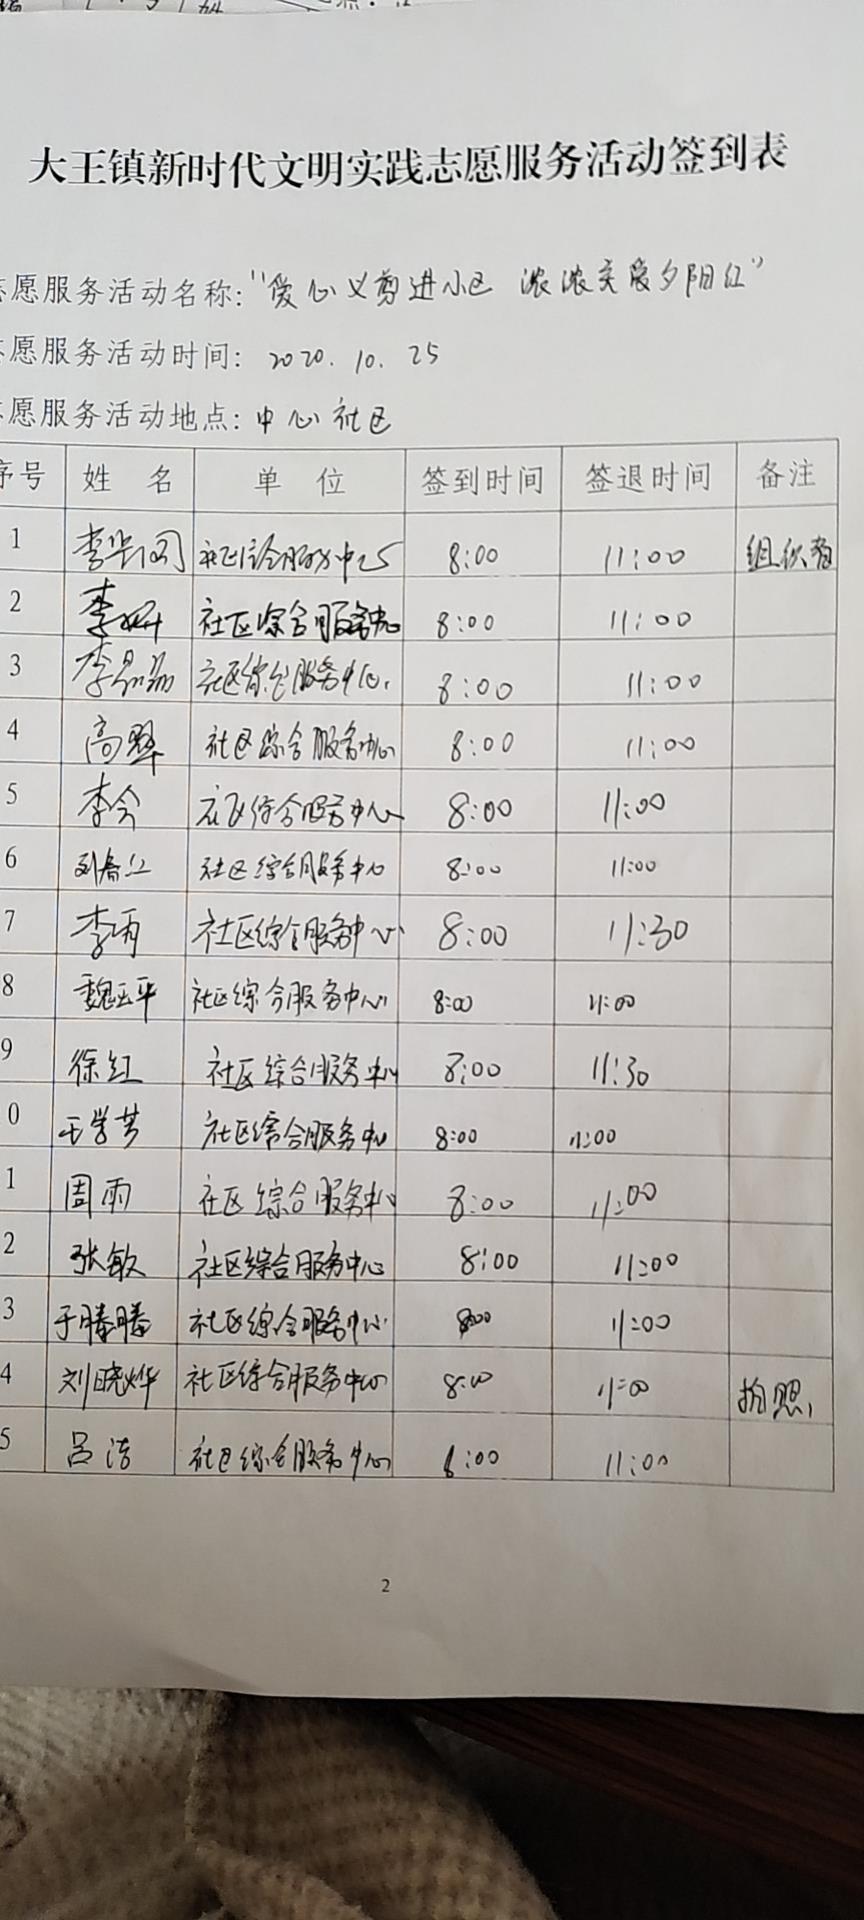 大王镇新时代文明实践志愿服务活动签到表
志愿服务活动名称:"爱心义剪进小区 浓浓关爱夕阳红"
志愿服务活动时间: 2020.10.25
志愿服务活动地点: 中心社区
序号 姓 名 单 位 签到时间 签退时间 备注
1 社区综合服务中心 8:00 11:00 组织者
2 社区综合服务中心 8:00 11:00
3 社区综合服务中心 8:00 11:00
4 社区综合服务中心 8:00 11:00
5 李今 社区综合服务中心 8:00 11:00
6 刘春江 社区综合服务中心 8:00 11:00
7 社区综合服务中心 8:00 11:30
8 魏玉平 社区综合服务中心 8:00 11:00
9 徐红 社区综合服务中心 8:00 11:30
0 王学芹 社区综合服务中心 8:00 11:00
1 周雨 社区综合服务中心 8:00 11:00
2 张敏 社区综合服务中心 8:00 11:00
3 于腾腾 社区综合服务中心 8:00 11:00
4 刘晓烨 社区综合服务中心 8:00 11:00 拍照
5 吕洁 社区综合服务中心 8:00 11:00
2